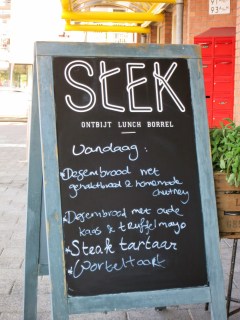 STEK
ONTBIJT LUNCH BORREL
Vandaag:
Desembrood met
gehaktbrood & homemade
chutney
Desembrood met oude
kaas & truffelmayo
Steak tartaar
Worteltaart